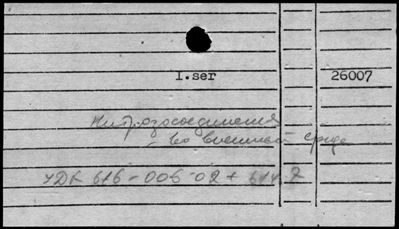 1.ser 26007
Нитрозосоединения
во внешней среде
УДК 616-006-02+614.7